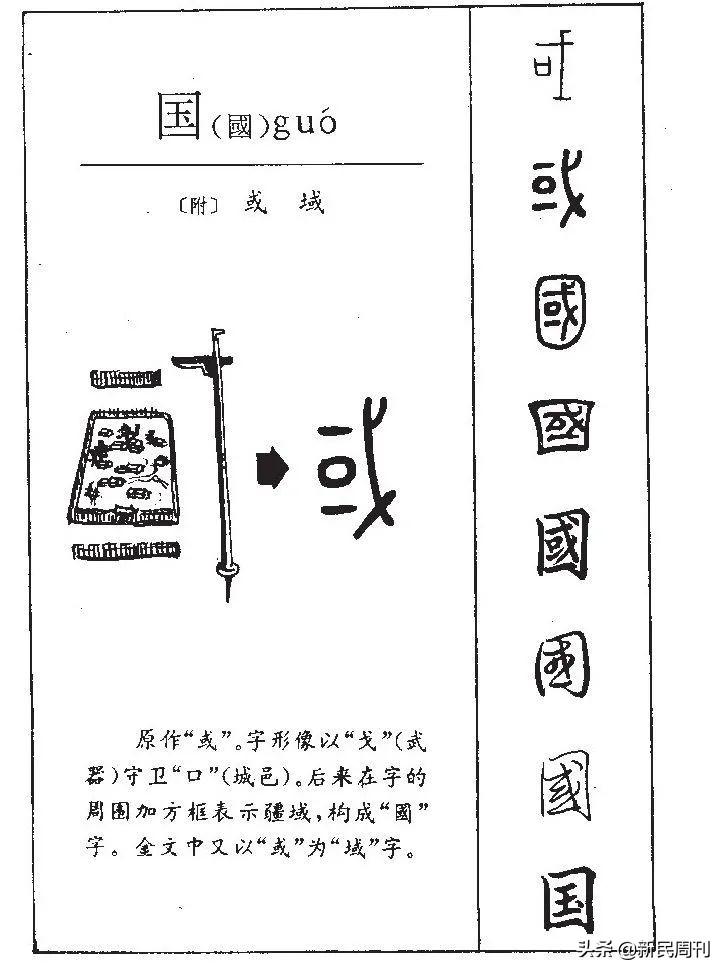 国(國)guó
〔附〕 或 域
或
原作“或”。字形像以“戈”(武
器)守卫“口”(城邑)。后来在字的
周围加方框表示疆域,构成“國”
字。金文中又以“或”为“域”字。
或
國
國
國
國
國
国
头条 @新民周刊